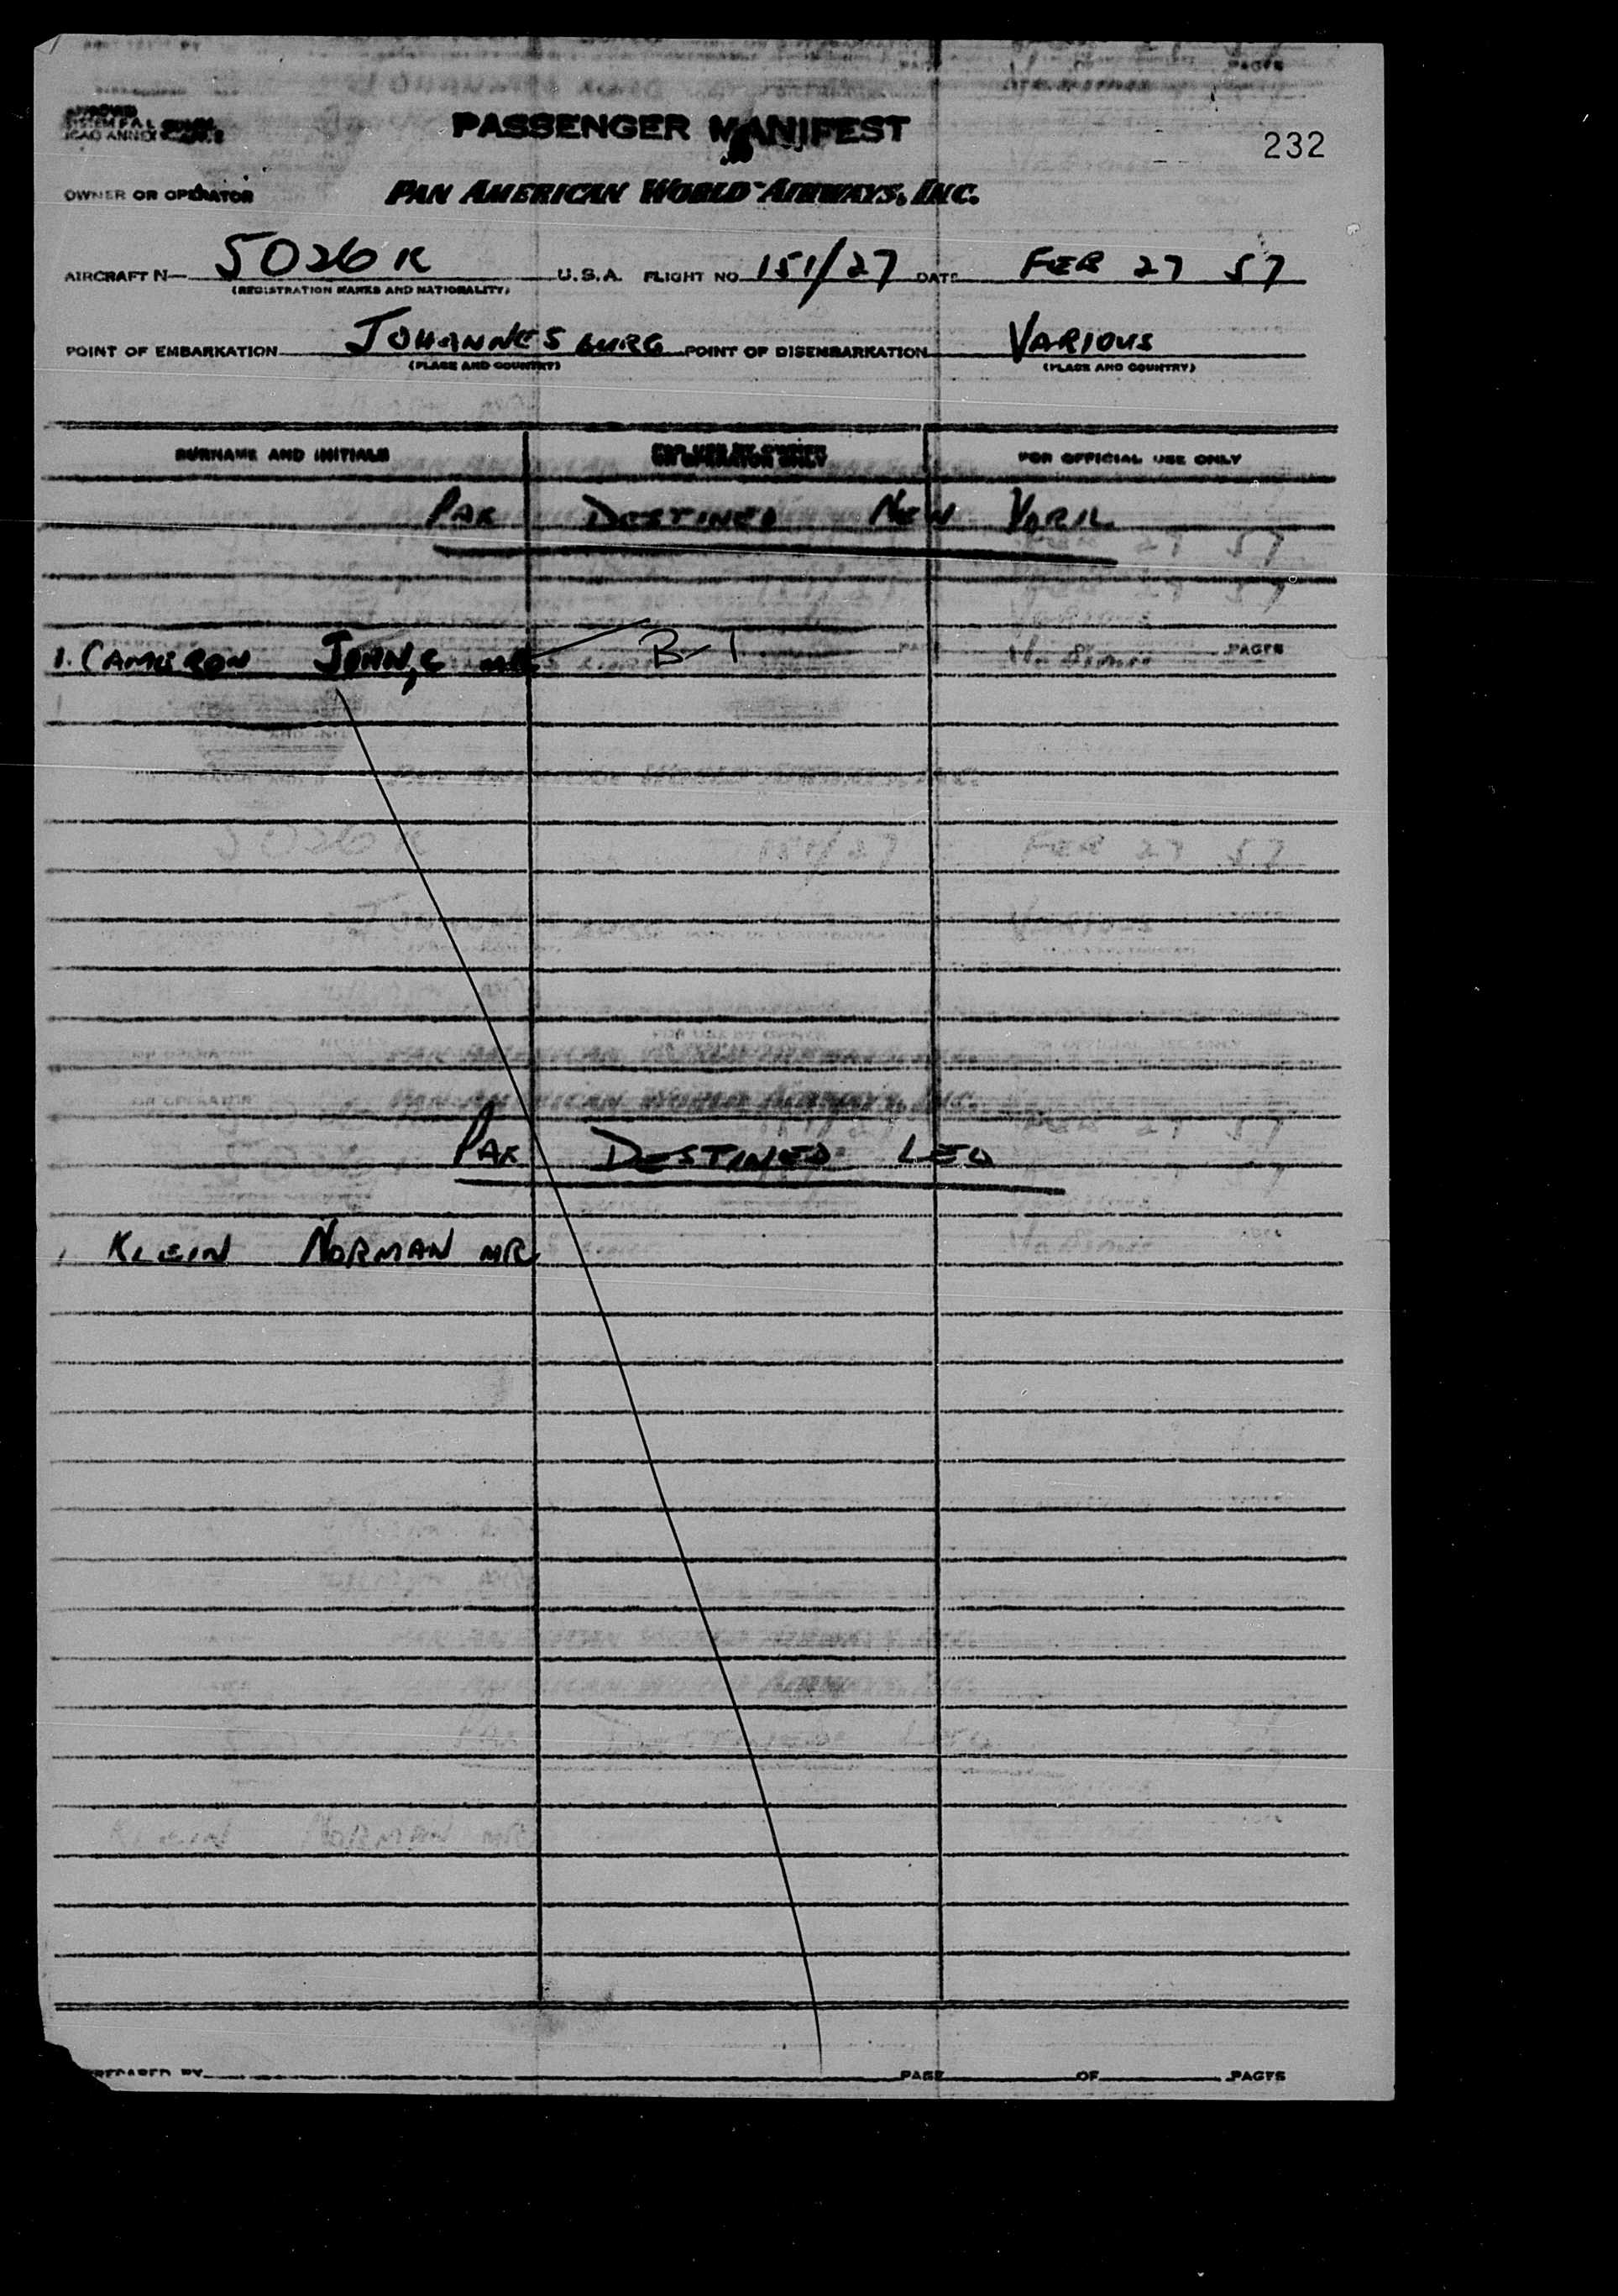 PASSENGER MANIFEST
232
OWNER OR OPERATOR PAN AMERICAN WORLD AIRWAYS, INC.
AIRCRAFT N— 5026K U.S.A. FLIGHT NO 151/27 DATE FEB 27 57
(REGISTRATION MARKS AND NATIONALITY)
POINT OF EMBARKATION JOHANNESBURG POINT OF DISEMBARKATION VARIOUS
(PLACE AND COUNTRY) (PLACE AND COUNTRY)
SURNAME AND INITIALS FOR USE BY OWNER OR OPERATOR ONLY FOR OFFICIAL USE ONLY
PAX DESTINED NEW YORK
1. CAMERON JOHN, C MR B-1
PAX DESTINED LEO
1 KLEIN NORMAN MR
PREPARED BY PAGE OF PAGES